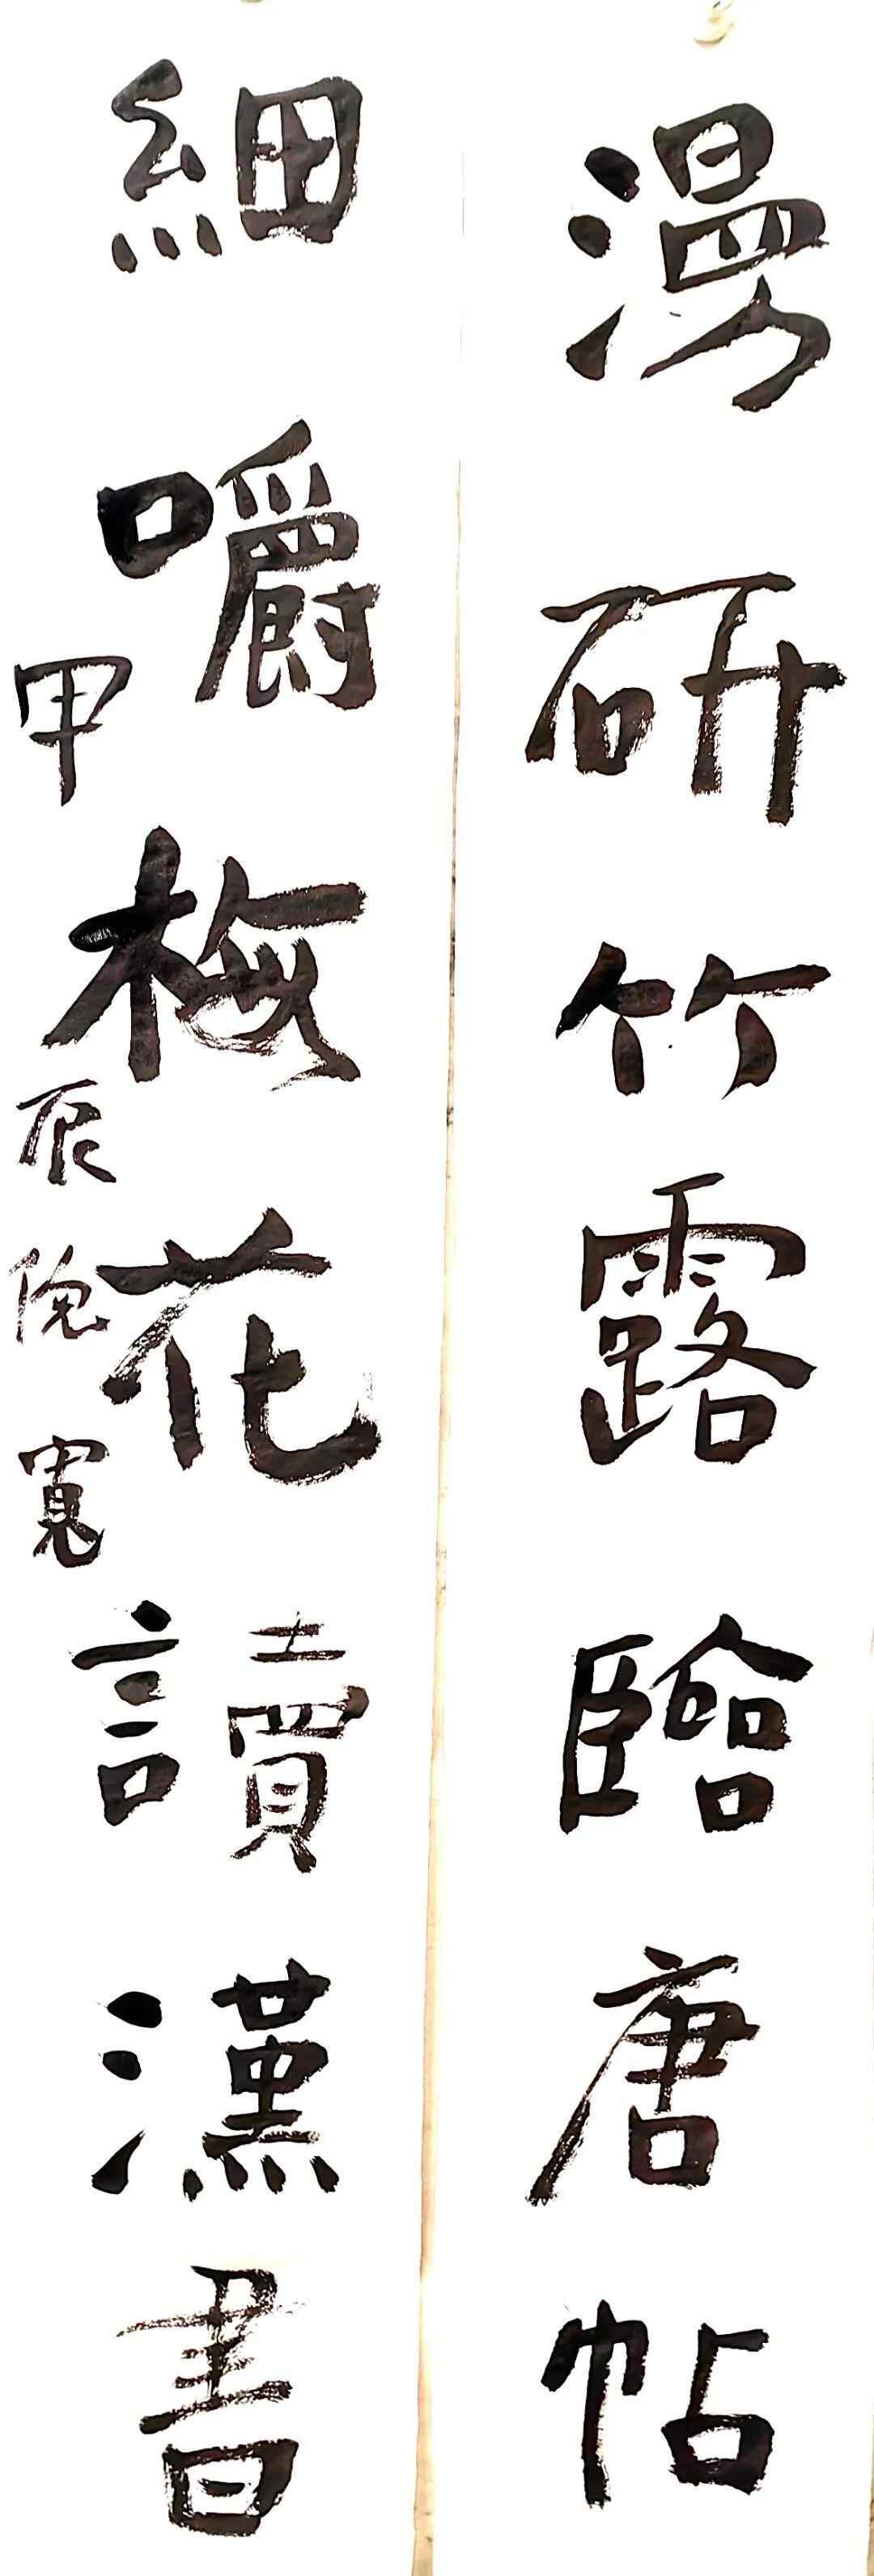 漫研竹露臨唐帖
細嚼梅花讀漢書
甲辰 寬